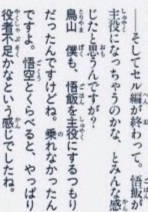 ――そしてセル編が終わって。悟飯が
主役になっちゃうのかな、とみんな感
じたと思うんですが？
鳥山　僕も、悟飯を主役にするつもり
だったんですけどね。乗れなかったん
ですよ。悟空とくらべると、やっぱり
役者不足かなという感じでしたね。